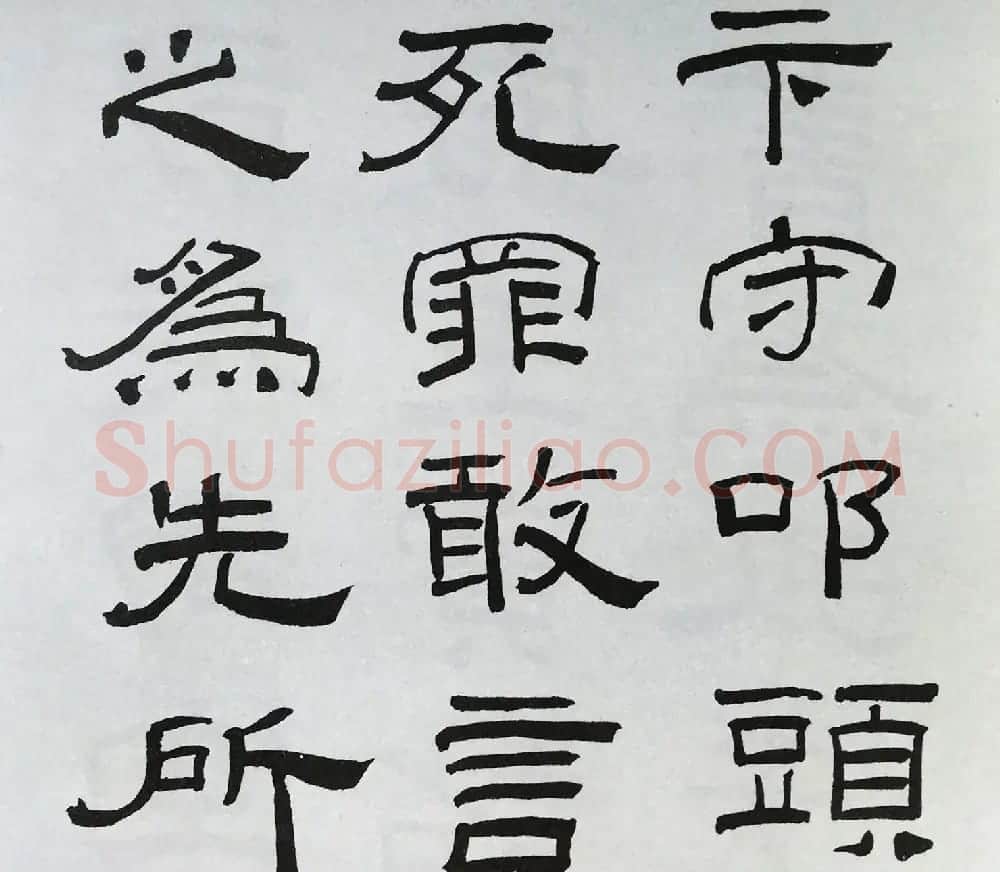 卞守叩頭
死罪敢言
之為先所
Shufaziliao.COM